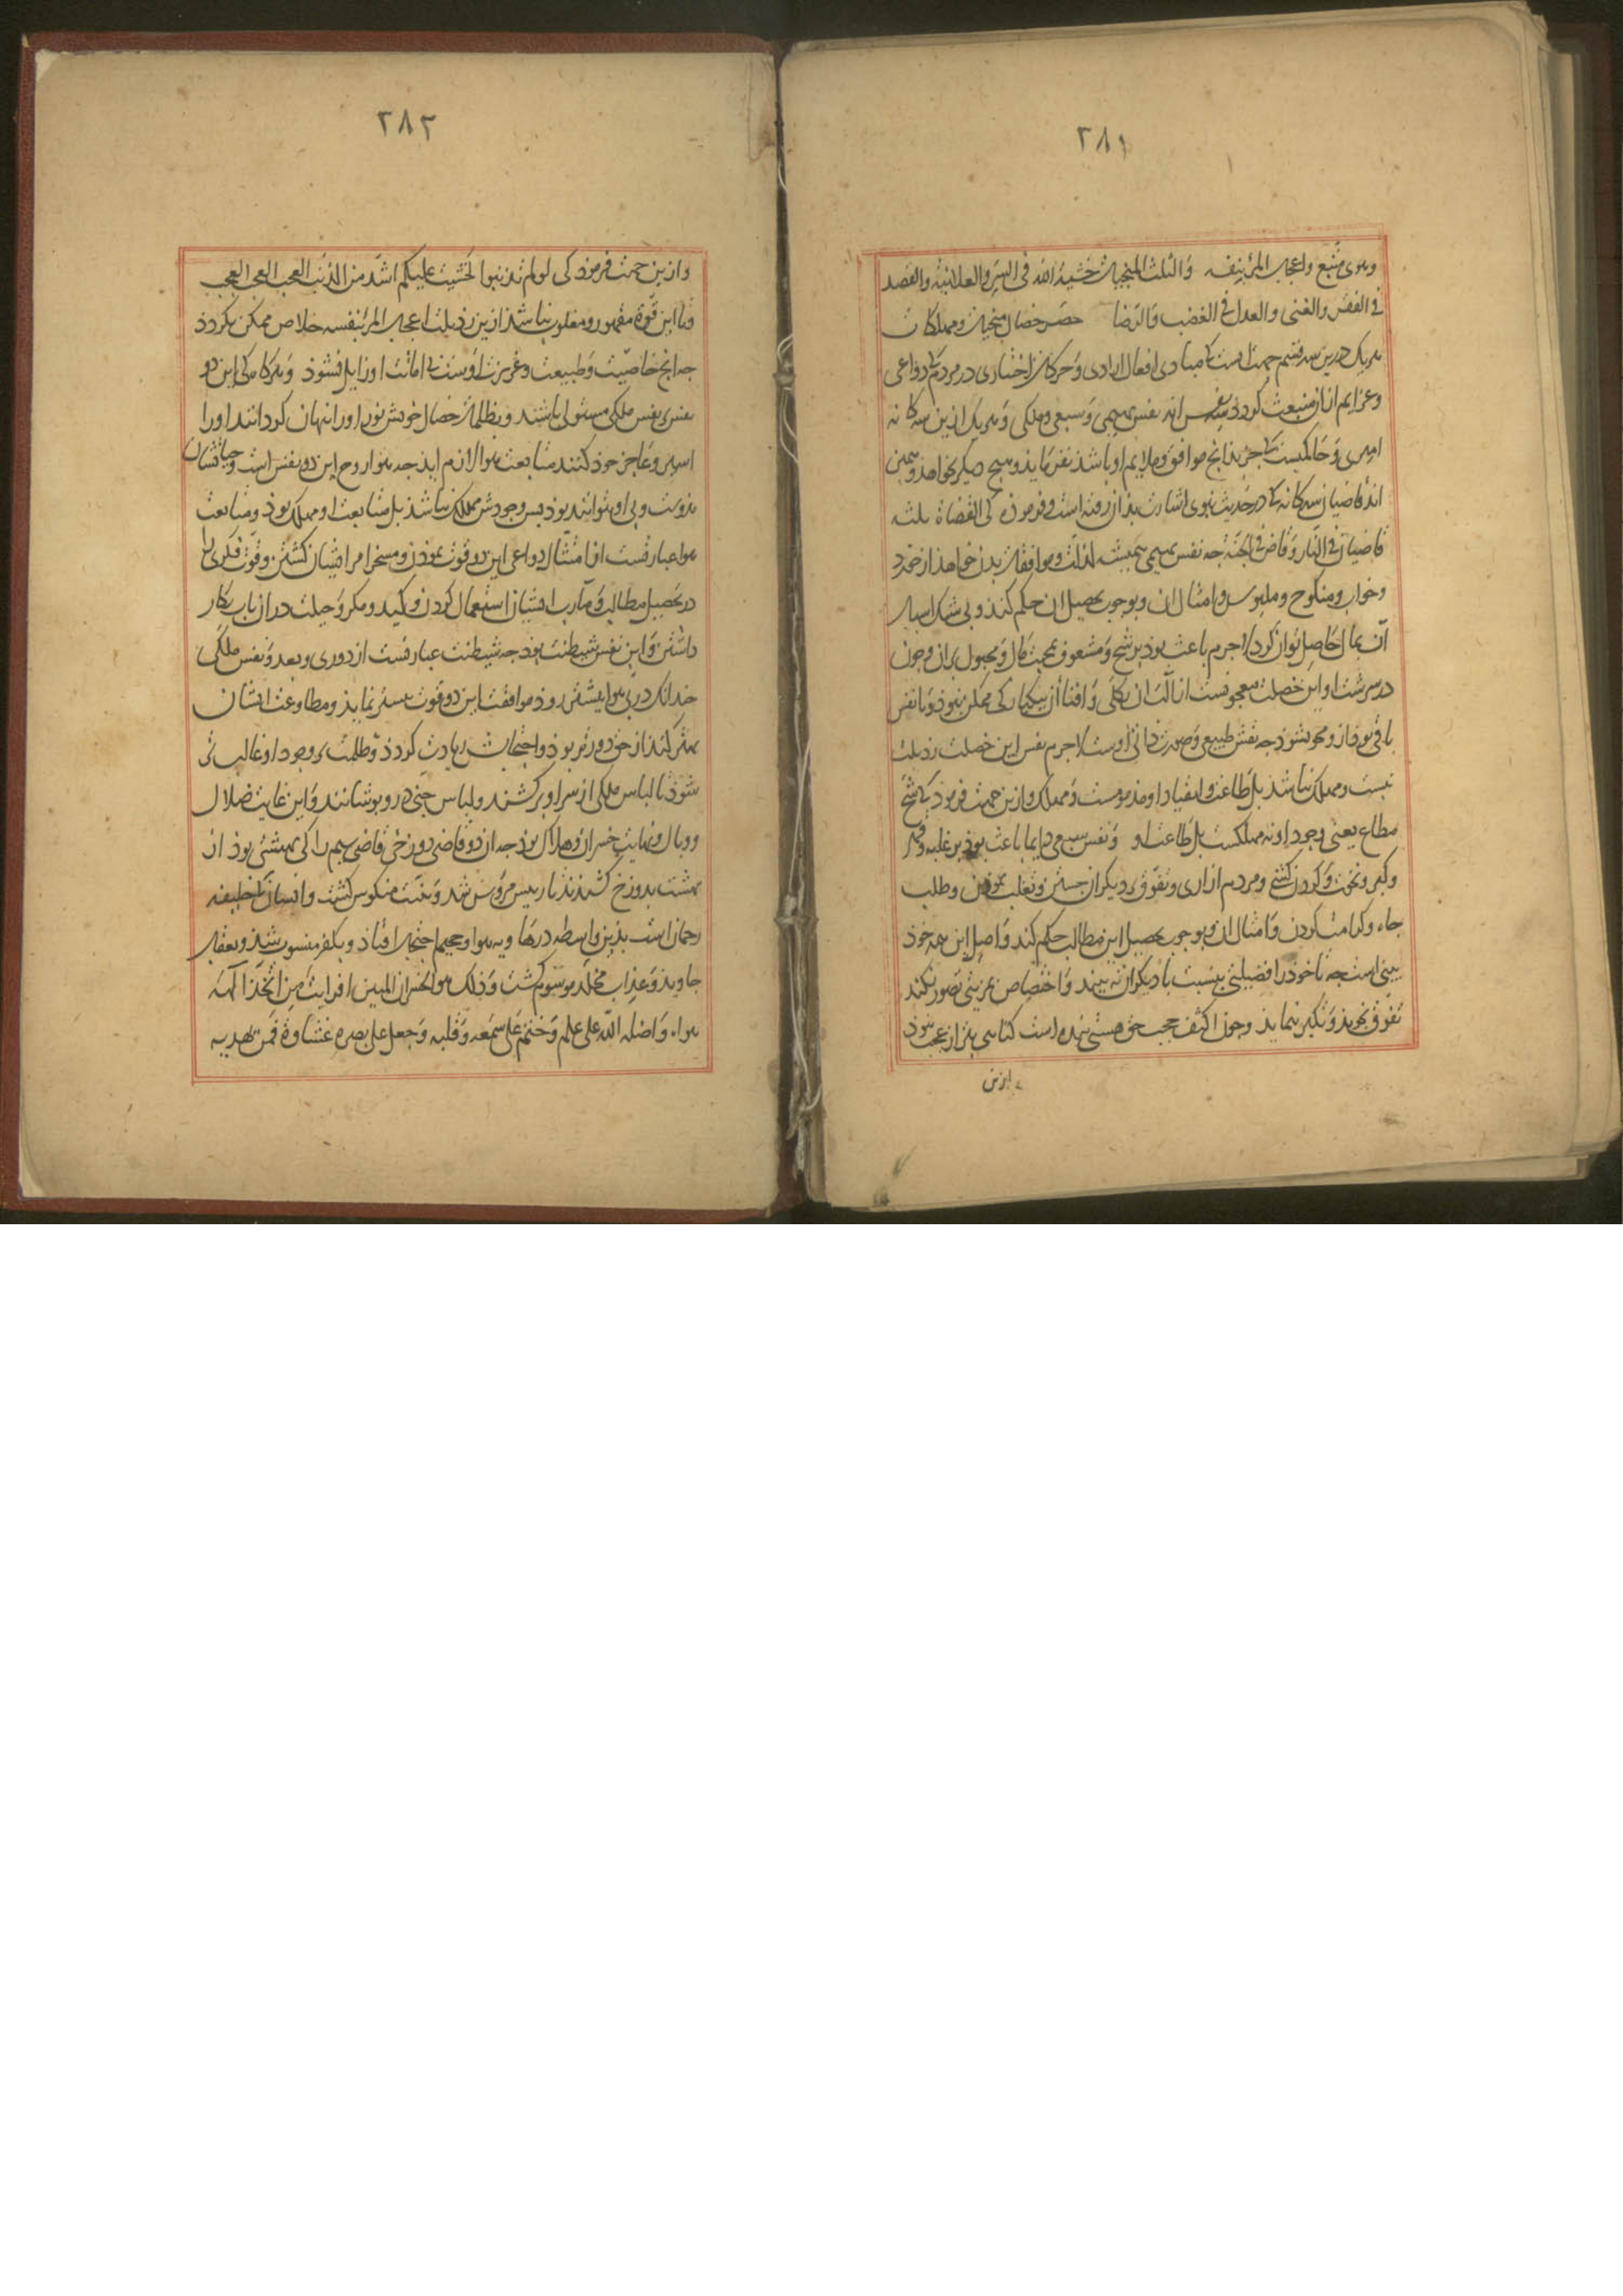 ۲۸۱
وهوی متبع واعجاب المرء بنفسه والثلث المنجیات خشیة الله فی السر والعلانیة والقصد
فی الفقر والغنی والعدل فی الغضب والرضا حصر خصال منجیات ومهلکات
هر یک درین سه قسم جهت انست که مبادی افعال ارادی وحرکات اختیاری در مردم که دواعی
وعزایم از ان منبعث کردد سه نفس اند نفس بهیمی وسبعی وملکی وهر یک ازین سه کانه
امیری وحاکمیست که جز بدانچ موافق وملایم او باشد نفرماید وهیچ دیکر نخواهد وهمین
اند قاضیان سه کانه که در حدیث نبوی اشارت بذان رفته است وفرموذه کی القضاة ثلثه
قاضیان فی النار وقاض فی الجنة جه نفس بهیمی همیشه لذات وموافقات بدن خواهد از خورد
وخواب ومنکوح وملبوس وامثال ان وبوجوب تحصیل ان حکم کند وبی شک اسباب
آن بمال حاصل توان کرد لاجرم باعث بوذ بر شح ومشعوف بمحبت مال ومجبول بران وجون
در سرشت او این خصلت معجونست ازالت ان بکلی وافناء ان بیکبارکی ممکن نبوذ وتا نفس
باقی بوذ ازو محو نشوذ جه نقش طبیعی وصورت ذاتی اوست لاجرم نفس این خصلت رذیلت
نیست ومهلک نباشذ بل طاعت وانقیاد او مذمومست ومهلک وازین جهت فرموذ که شح
مطاع یعنی وجود او نه مهلکست بل طاعت او ونفس سبعی دایما باعث بوذ بر غلبه وقهر
وکبر ونخوت وکردن کشی ومردم ازاری وتفوق بر دیکران جستن وتغلب نموذن وطلب
جاه وکرامت کردن وامثال ان وبوجوب تحصیل این مطالب حکم کند واصل این همه خوذ
بینی است جه تا خوذ را فضیلتی بنسبت با دیکران نه بیند واختصاص بمزیتی تصور نکند
تفوق نجوید وتکبر ننماید وجون اکثف حجب حق هستی بنده است کناهی بتر از عجب نبوذ
وازین
۲۸۲
وازین جهت فرموذ کی لو لم تذنبوا لخشیت علیکم اشد من الذنب العجب العجب العجب
وتا این قوة مقهور ومغلوب نباشذ ازین رذیلت اعجاب المرء بنفسه خلاص ممکن نکردذ
جه انچ خاصیت وطبیعت وغریزت اوست بی اماتت او زایل نشوذ وهرکاه کی این دو
نفس بر نفس ملکی مستولی باشند وبظلمات خصال خویش نور او را نهان کردانند او را
اسیر وعاجز خوذ کنند متابعت هوا لازم ایذ جه هوا روح این دو نفس است وحیاتشان
بذوست وبی او نتوانند بوذ بس وجودش مهلک نباشذ بل متابعت او مهلک بوذ ومتابعت
هوا عبارتست از امتثال دواعی این دو قوت نموذن ومسخر امر ایشان کشتن وقوت فکری را
در تحصیل مطالب ومآرب ایشان استعمال کردن وکید ومکر وحیلت دران باب بکار
داشتن واین نفس شیطنت بوذ جه شیطنت عبارتست از دوری وبعد ونفس ملکی
جندانک در پی هوا بیشتر روذ موافقت این دو قوت بیشتر نماید ومطاوعت ایشان
بهتر کند از حق دورتر بوذ واحتجابش زیادت کردذ وظلمت بر وجود او غالب تر
شوذ تا لباس ملکی از سر او برکشند ولباس جنی درو بوشانند واین غایت ضلال
ووبال ونهایت خسران وهلاک بوذ جه ان دو قاضی دوزخی قاضی سیم را کی بهشتی بوذ از
بهشت بدوزخ کشیدند تا رییس مرؤس شد وبنیت منکوس کشت وانسان که خلیفه
رحمان است بذین واسطه در هاویه هوا وجحیم احتجاب افتاذ وبکفر منسوب شذ وبعقاب
جاوید وعذاب مخلد موسوم کشت وذلک هو الخسران المبین افرایت من اتخذ الهه
هواه واضله الله علی علم وختم علی سمعه وقلبه وجعل علی بصره غشاوة فمن یهدیه